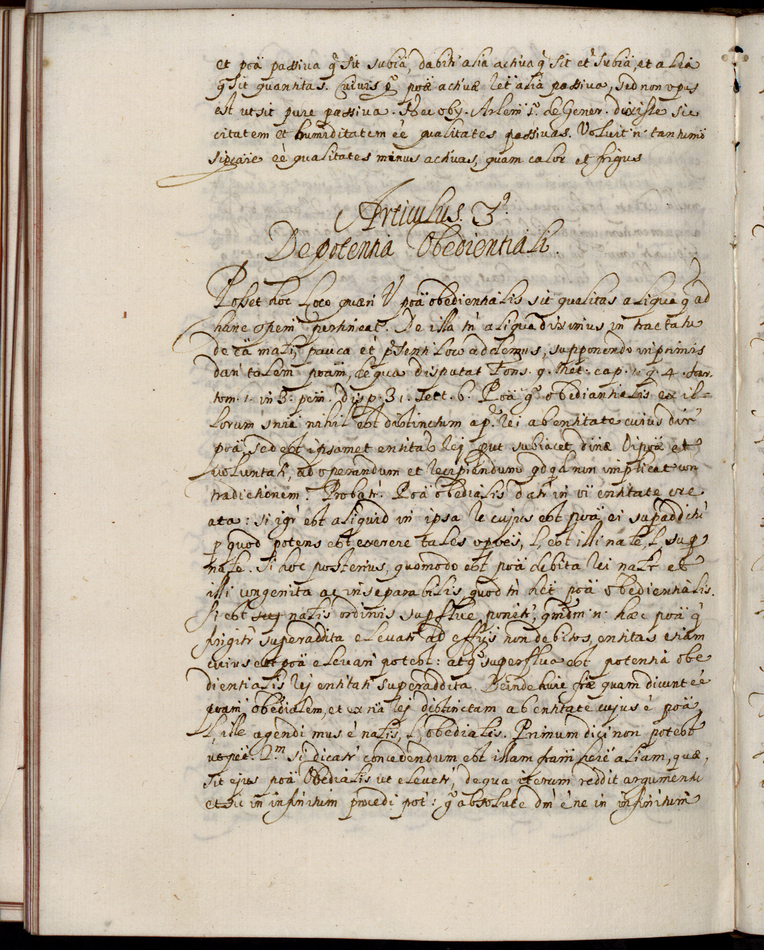 et poã passiva q̃ sit subiã, dabitr̃ alia activa q̃ sit et̃ subiã, et alia
q̃ sit quantitas. Cuivis g̃ poæ activæ ret alia passiva, sed non opus
est ut sit pure passiva. Nec oby. Arlem 1.º de Gener. dixisse sic
citatem et humiditatem ee qualitates passivas. Voluit n. tantum
sigcare ee qualitates minus activas, quam calor et frigus
Articulus. 3.º
De potentia Obedientiali.
Posset hoc Loco quæri V poã obedientialis sit qualitas aliqua q̃ ad
hanc spem pertineat. De illa tñ aliqua diximus in tractatu
de cã mali, pauca et pr̃senti loco addemus, supponendo inprimis
dari talem poam, de qua disputat Fons. 9. Met. cap. 1. q. 4. Suar.
tom. 1. in 3. pem. disp. 31. sett. 6. Poã g̃ obedientialis ex il-
lorum snia nihil est distinctum a pe. rei ab entitate cuius dr̃
poã, sed est ipsamet entitas rej put subiacet dinæ Oipoæ et
voluntati, ad operandum et recipiendum qdqd non implicat con
tradictionem. Probatr̃. Poã obedialis datr̃ in oi entitate cre
ata: si igr̃ est aliquid in ipsa re cujus est poã ei supadditũ
p quod potens est exerere tales opões, L est illi nale L sup
nale. Si hoc posterius, quomodo est poã debita rei nalr̃ et
illi congenita ac inseparabilis, quod tñ het poã obedientialis.
Si est nalis ordinis supflue ponetr̃, qnidm n. hæc poã q̃
fingitr̃ superaddita elevatr̃ ad effus non debitos, entitas etiam
cuius est poã elevari potest: atq̃ superflua est potentia obe
dientialis rej entitati superaddita. Deinde huic fræ quam dicunt ee
poam obedialem, et ex na rej distinctam ab entitate cujus e poã,
L, ille agendi mus e nalis, L, obedialis. Primum dici non potest
ut pet. 2.m si dicatr̃ concedendum est illam fram here aliam, quæ,
sit ejus poã Obedialis ut elevetr̃, de qua iterum reddit argumentũ
et sic in infinitum procedi pot: g̃ absolute dm e ne in infinitum